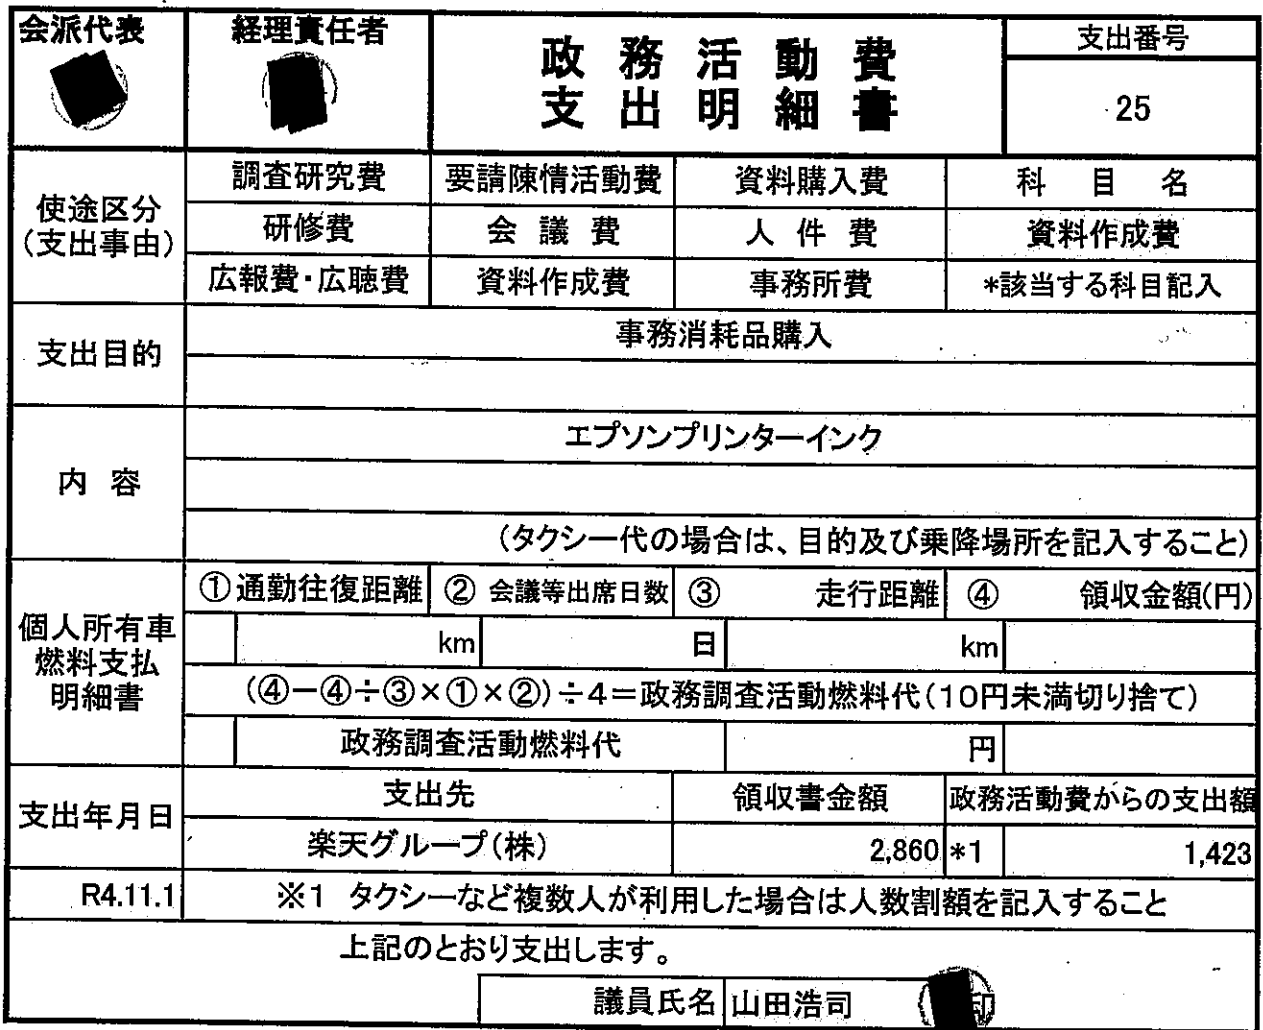 会派代表
経理責任者
政務活動費
支出明細書
支出番号
25
使途区分
（支出事由）
調査研究費
要請陳情活動費
資料購入費
科目名
研修費
会議費
人件費
資料作成費
広報費・広聴費
資料作成費
事務所費
*該当する科目記入
支出目的
事務消耗品購入
内容
エプソンプリンターインク
（タクシー代の場合は、目的及び乗降場所を記入すること）
個人所有車
燃料支払
明細書
①通勤往復距離
② 会議等出席日数
③ 走行距離
④ 領収金額(円)
km
日
km
（④－④÷③×①×②）÷4＝政務調査活動燃料代（10円未満切り捨て）
政務調査活動燃料代
円
支出年月日
支出先
領収書金額
政務活動費からの支出額
楽天グループ（株）
2,860
*1
1,423
R4.11.1
※1 タクシーなど複数人が利用した場合は人数割額を記入すること
上記のとおり支出します。
議員氏名
山田浩司
印